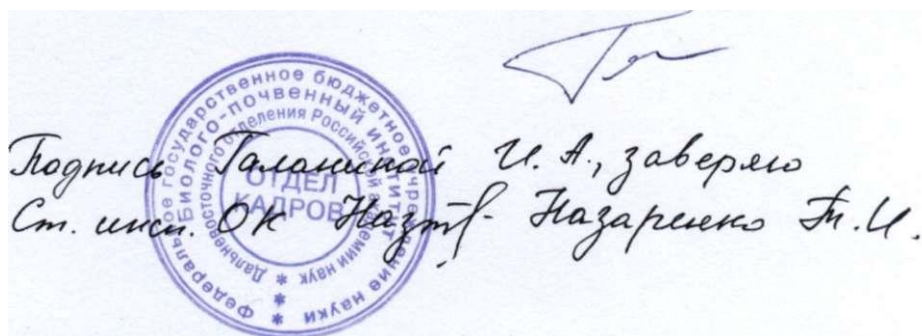 Подпись Галаниной И. А., заверяю
Ст. инсп. ОК Назаренко Т. И.
Федеральное государственное бюджетное учреждение науки
Биолого-почвенный институт
Дальневосточного отделения Российской академии наук
ОТДЕЛ
КАДРОВ